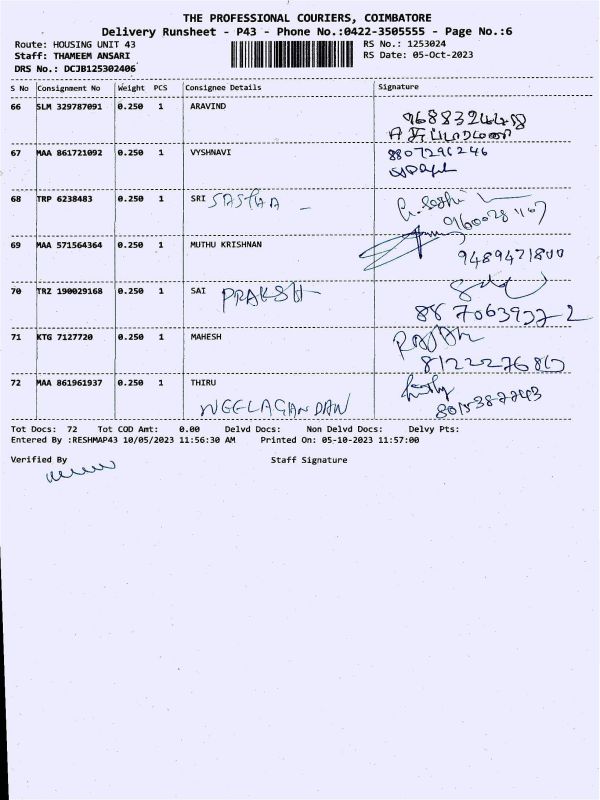 THE PROFESSIONAL COURIERS, COIMBATORE
Delivery Runsheet - P43 - Phone No.:0422-3505555 - Page No.:6
Route: HOUSING UNIT 43 RS No.: 1253024
Staff: THAMEEM ANSARI RS Date: 05-Oct-2023
DRS No.: DCJB125302406
S No Consignment No Weight PCS Consignee Details Signature
66 SLM 329787091 0.250 1 ARAVIND
67 MAA 861721092 0.250 1 VYSHNAVI 8807296246
68 TRP 6238483 0.250 1 SRI SASTHA
69 MAA 571564364 0.250 1 MUTHU KRISHNAN 9489471800
70 TRZ 190029168 0.250 1 SAI PRAKSH
71 KTG 7127720 0.250 1 MAHESH
72 MAA 861961937 0.250 1 THIRU
NEELAGANDAN
Tot Docs: 72 Tot COD Amt: 0.00 Delvd Docs: Non Delvd Docs: Delvy Pts:
Entered By :RESHMAP43 10/05/2023 11:56:30 AM Printed On: 05-10-2023 11:57:00
Verified By Staff Signature